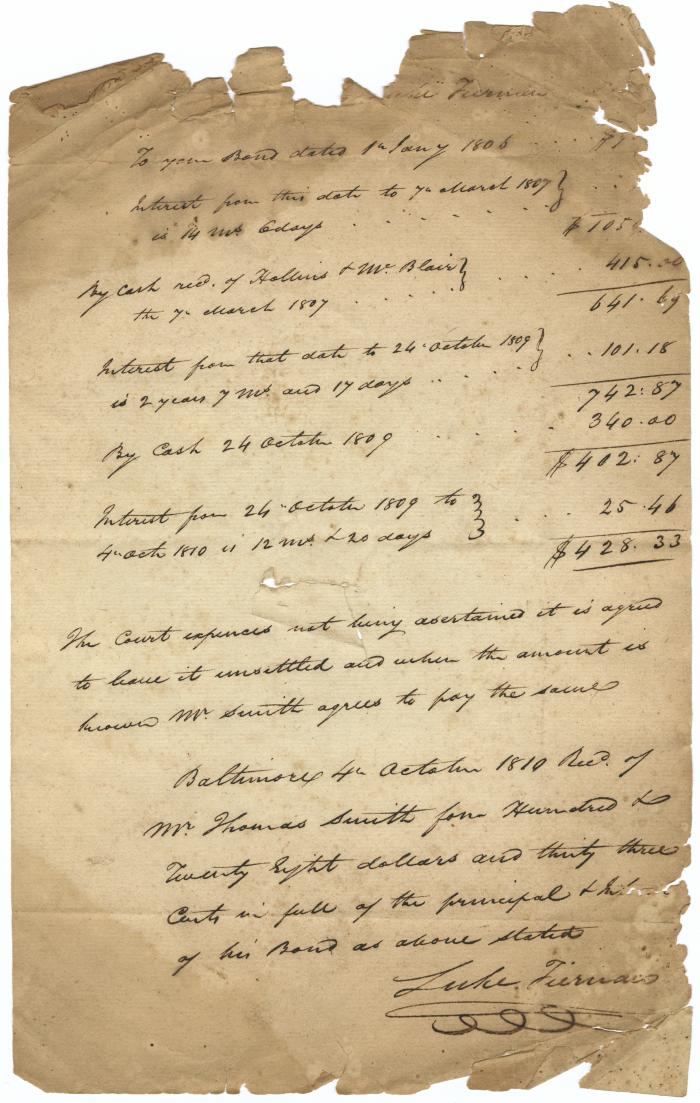 Luke Tiernan
To your Bond dated 1st Jany 1806 . . .
Interest from this date to 7th March 1807 }
is 14 Ms 6 days . . . . . $ 105
By Cash recd. of Hollins & Mc Blair } . . 415.00
the 7th March 1807 . . . . 641.69
Interest from that date to 24th October 1809 } . . 101.18
is 2 years 7 Ms and 17 days . . . 742.87
By Cash 24 October 1809 . . . . 340.00
$ 402.87
Interest from 24th October 1809 to } . . 25.46
4th Octr 1810 is 12 Ms & 20 days } $ 428.33
The Court expences not being asertained it is agreed
to leave it unsettled and when the amount is
known Mr. Smith agrees to pay the same
Baltimore 4th October 1810 Recd. of
Mr Thomas Smith four Hundred &
Twenty Eight dollars and thirty three
Cents in full of the principal &
of his Bond as above stated
Luke Tiernan